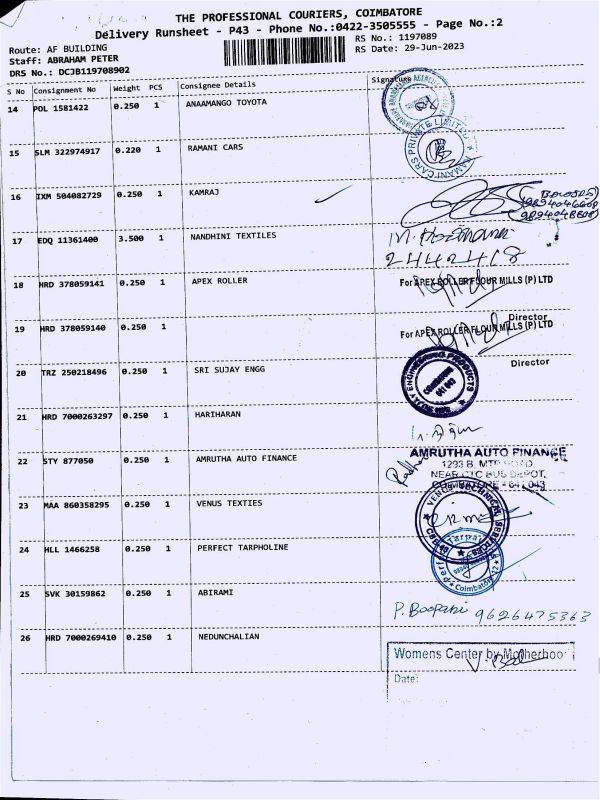 THE PROFESSIONAL COURIERS, COIMBATORE
Delivery Runsheet - P43 - Phone No.:0422-3505555 - Page No.:2
Route: AF BUILDING
RS No.: 1197089
Staff: ABRAHAM PETER
RS Date: 29-Jun-2023
DRS No.: DCJB119708902
S No Consignment No Weight PCS Consignee Details Signature
14 POL 1581422 0.250 1 ANAAMANGO TOYOTA
15 SLM 322974917 0.220 1 RAMANI CARS
RAMANI CARS PRIVATE LIMITED
16 IXM 504082729 0.250 1 KAMRAJ
17 EDQ 11361400 3.500 1 NANDHINI TEXTILES
2442418
18 HRD 378059141 0.250 1 APEX ROLLER
For APEX ROLLER FLOUR MILLS (P) LTD
Director
19 HRD 378059140 0.250 1
For APEX ROLLER FLOUR MILLS (P) LTD
Director
20 TRZ 250218496 0.250 1 SRI SUJAY ENGG
21 HRD 7000263297 0.250 1 HARIHARAN
22 STY 877050 0.250 1 AMRUTHA AUTO FINANCE
AMRUTHA AUTO FINANCE
1293 B, MTP ROAD
NEAR CTC BUS DEPOT,
COIMBATORE - 641 043
23 MAA 860358295 0.250 1 VENUS TEXTIES
24 HLL 1466258 0.250 1 PERFECT TARPHOLINE
Coimbatore-12
25 SVK 30159862 0.250 1 ABIRAMI
P. Boopathi 9626475363
26 HRD 7000269410 0.250 1 NEDUNCHALIAN
Womens Center by Motherhood
Date: